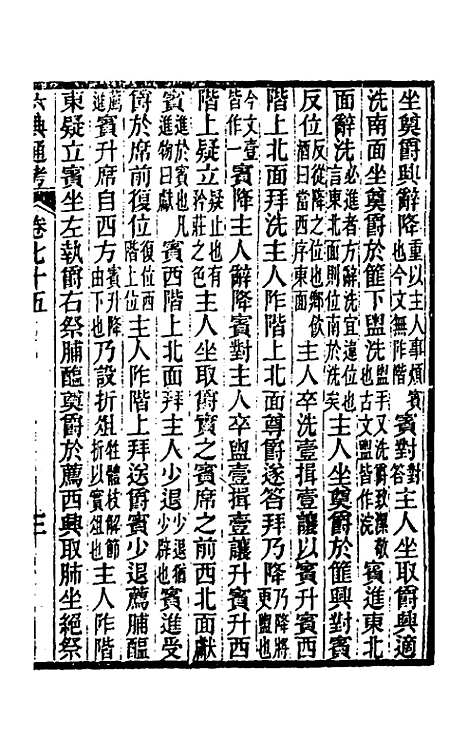 坐奠爵興辭降重以主人事煩賓也今文無阼階賓對對荅主人坐取爵興適
洗南面坐奠爵於篚下盥洗盥手又洗爵致潔敬也古文盥皆作浣賓進東北
面辭洗必進者方辭洗宜違位也言東北面則位南於洗矣主人坐奠爵於篚興對賓
反位反從降之位也鄉飲酒曰當西序東面主人卒洗壹揖壹讓以賓升賓西
階上北面拜洗主人阼階上北面奠爵遂答拜乃降乃降將更盥也
今文壹皆作一賓降主人辭降賓對主人卒盥壹揖壹讓升賓升西
階上疑立疑止也有矜莊之色主人坐取爵實之賓席之前西北面獻
賓進於賓也凡進物曰獻賓西階上北面拜主人少退少退猶少辟也賓進受
爵於席前復位復位西階上位主人阼階上拜送爵賓少退薦脯醢
薦進賓升席自西方賓升降由下也乃設折俎牲體枝解節折以實俎也主人阼階
東疑立賓坐左執爵右祭脯醢奠爵於薦西興取肺坐絕祭
六典通考
卷七十五
三